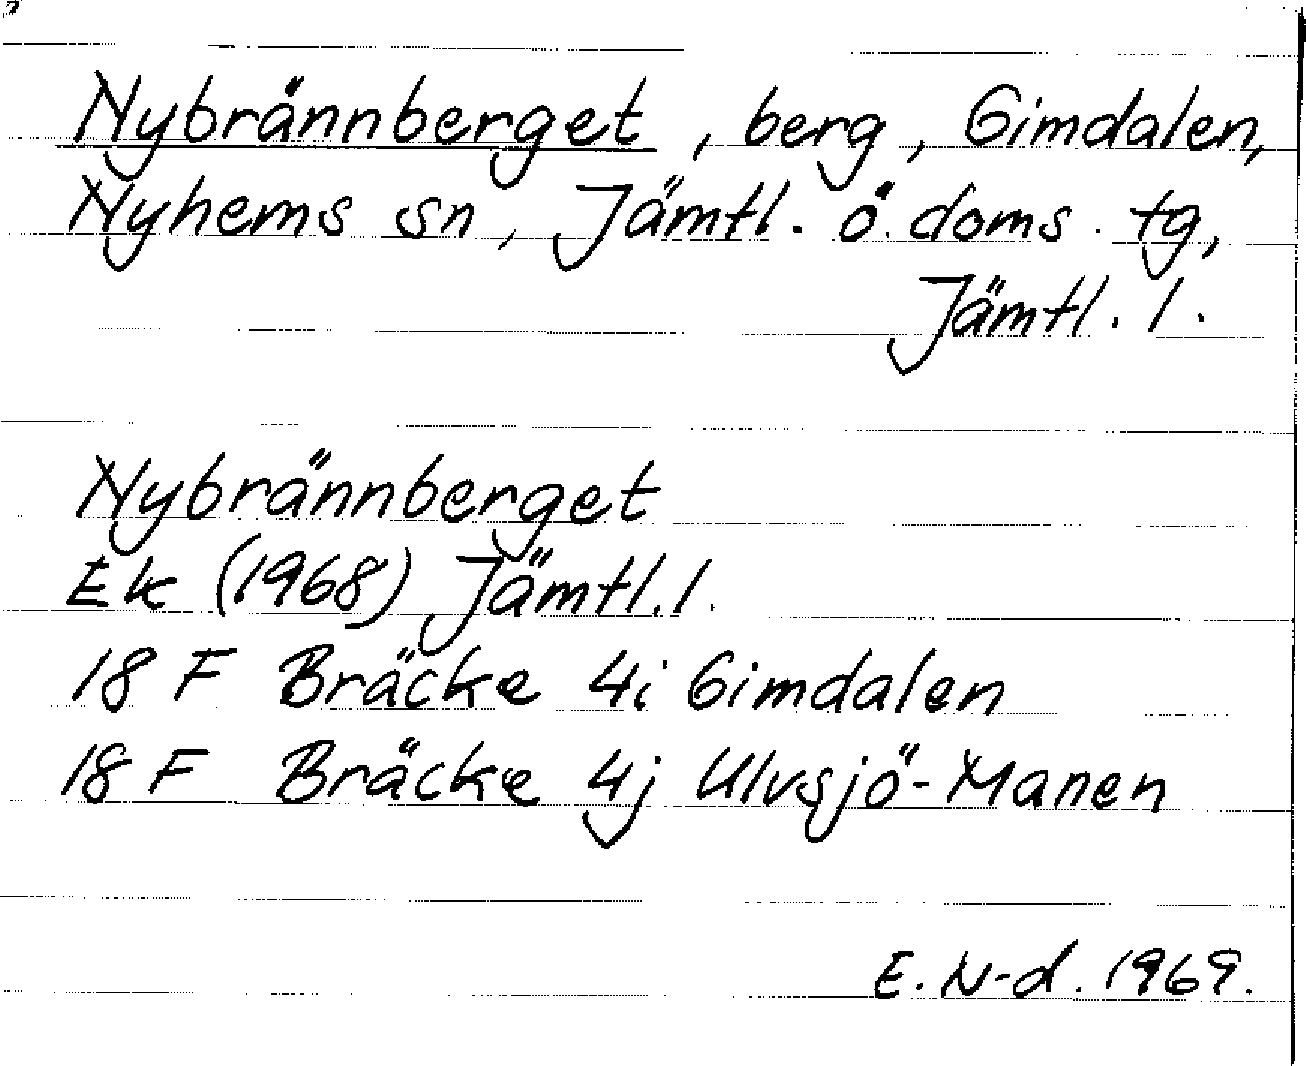 Nybrännberget, berg, Gimdalen,
Nyhems sn, Jämtl. ö. doms. tg,
Jämtl. l.
Nybrännberget
Ek (1968) Jämtl. l.
18 F Bräcke 4i Gimdalen
18 F Bräcke 4j Ulvsjö-Manen
E. N-d. 1969.